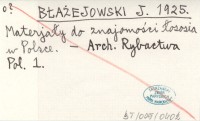 o?
BŁAŻEJOWSKI J. 1925.
Materjały do znajomości łososia
w Polsce. – Arch. Rybactwa
Pol. 1.